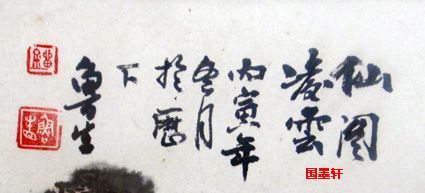 仙阁
凌雲
丙寅年
冬月
於歷
下
鲁生
国墨轩